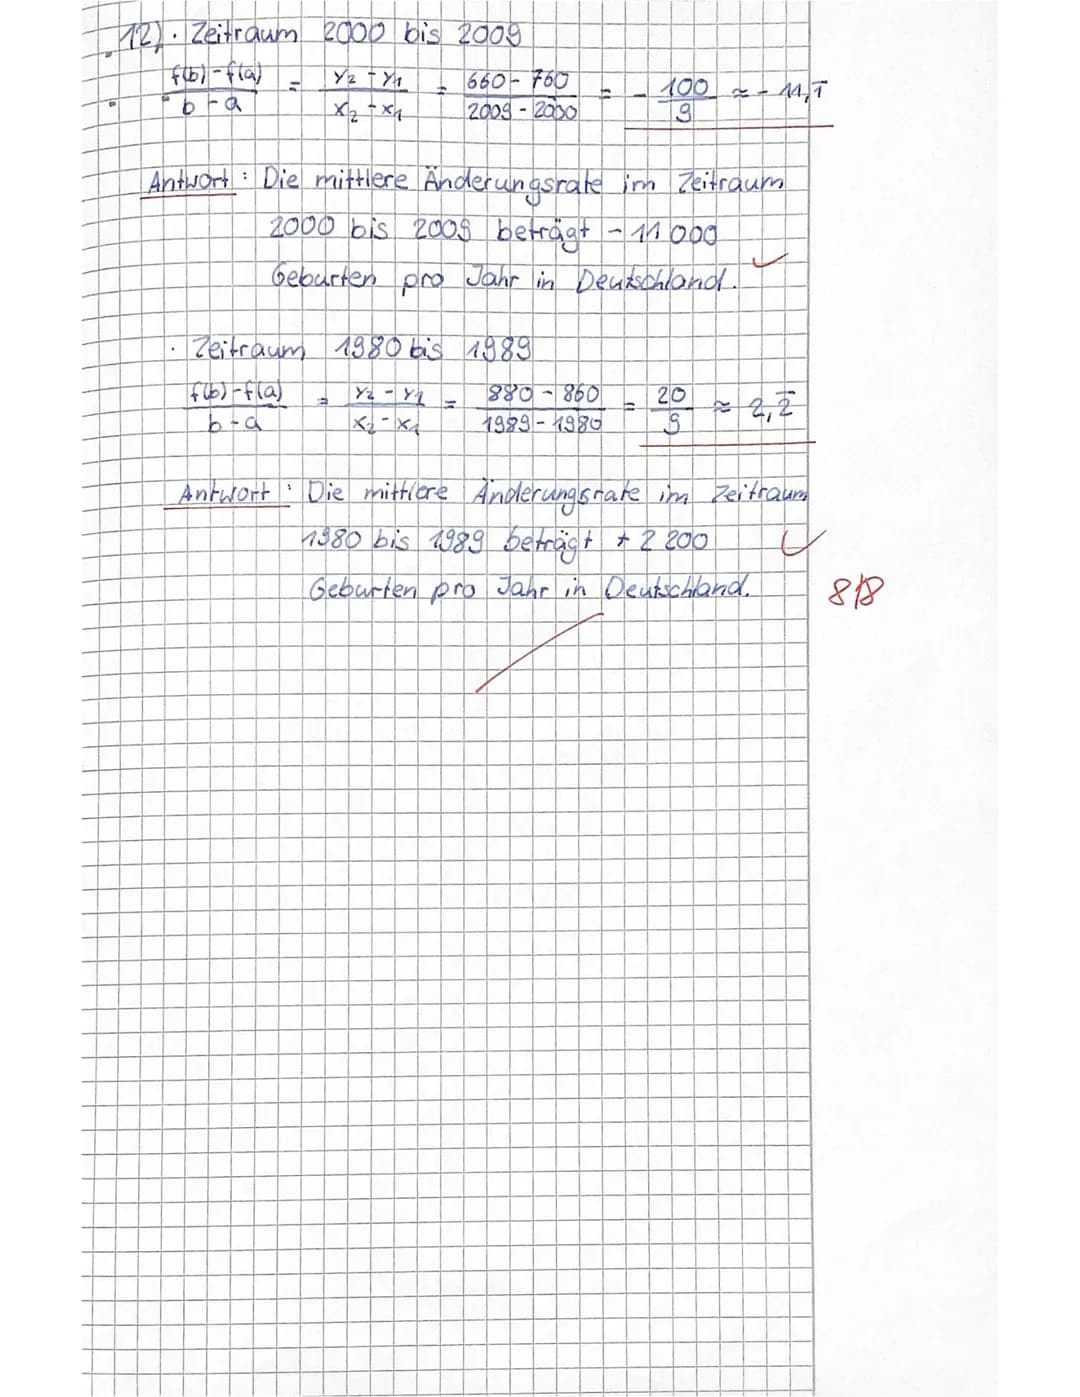 12) · Zeitraum 2000 bis 2009
f(b)-f(a) / b-a = y₂-y₁ / x₂-x₁ = 660-760 / 2009-2000 = - 100/9 ≈ - 11,1̅
Antwort: Die mittlere Änderungsrate im Zeitraum
2000 bis 2009 beträgt - 11 000
Geburten pro Jahr in Deutschland.
· Zeitraum 1980 bis 1989
f(b)-f(a) / b-a = y₂-y₁ / x₂-x₁ = 880-860 / 1989-1980 = 20/9 ≈ 2,2̅
Antwort: Die mittlere Änderungsrate im Zeitraum
1980 bis 1989 beträgt + 2 200
Geburten pro Jahr in Deutschland.
8/8